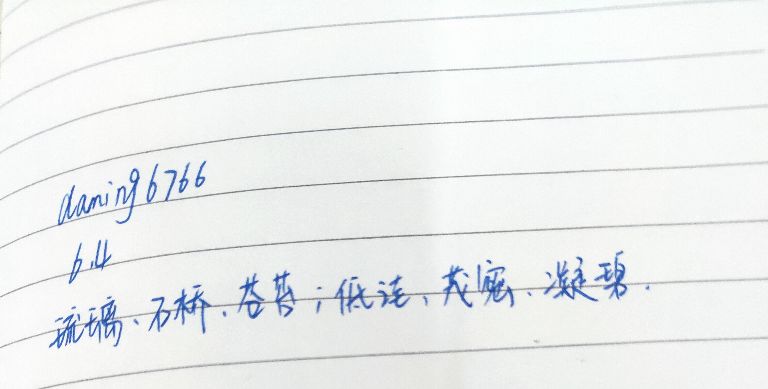 daming6766
6.4
琉璃、石桥、苍苔；低洼、茂密、凝碧.